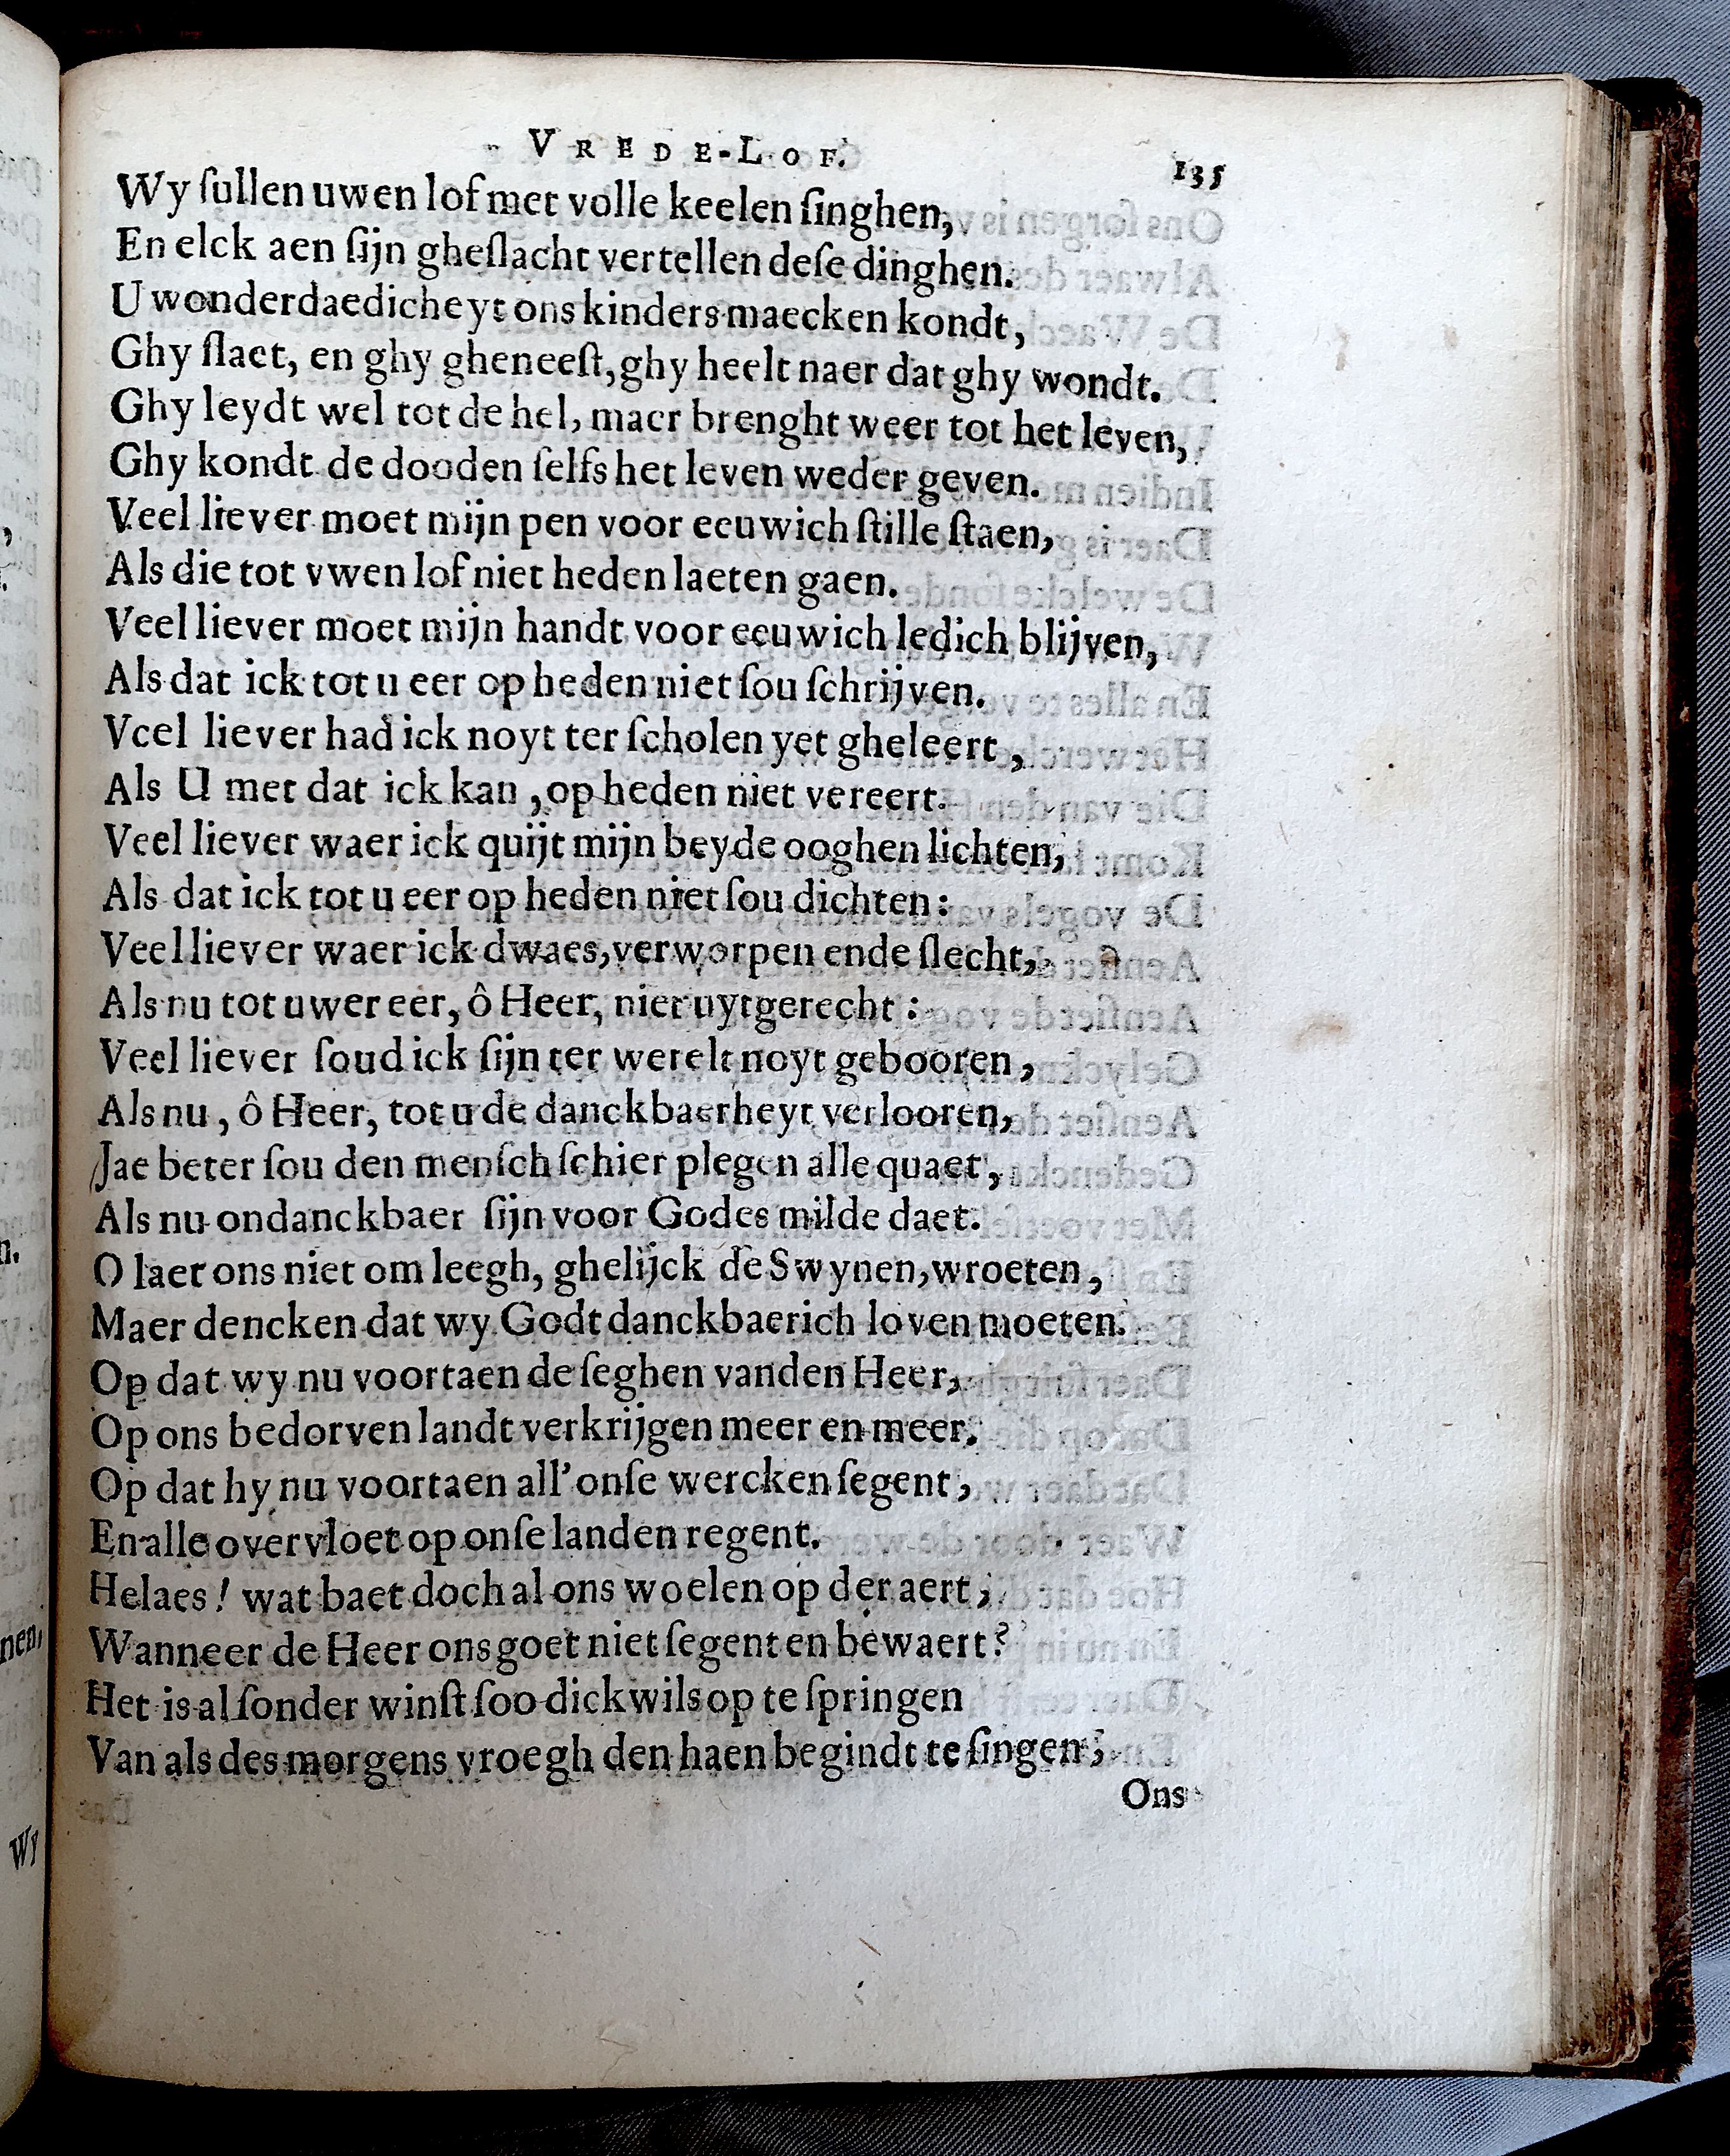 VREDE-LOF. 135
Wy ſullen uwen lof met volle keelen ſinghen,
En elck aen ſijn gheſlacht vertellen deſe dinghen.
U wonderdaedicheyt ons kinders maecken kondt,
Ghy ſlaet, en ghy gheneeſt, ghy heelt naer dat ghy wondt.
Ghy leydt wel tot de hel, maer brenght weer tot het leven,
Ghy kondt de dooden ſelfs het leven weder geven.
Veel liever moet mijn pen voor eeuwich ſtille ſtaen,
Als die tot vwen lof niet heden laeten gaen.
Veel liever moet mijn handt voor eeuwich ledich blijven,
Als dat ick tot u eer op heden niet ſou ſchrijven.
Veel liever had ick noyt ter ſcholen yet gheleert,
Als U met dat ick kan, op heden niet vereert.
Veel liever waer ick quijt mijn beyde ooghen lichten,
Als dat ick tot u eer op heden niet ſou dichten:
Veel liever waer ick dwaes, verworpen ende ſlecht,
Als nu tot uwer eer, ô Heer, niet uytgerecht:
Veel liever ſoud ick ſijn ter werelt noyt gebooren,
Als nu, ô Heer, tot u de danckbaerheyt verlooren,
Jae beter ſou den menſch ſchier plegen alle quaet,
Als nu ondanckbaer ſijn voor Godes milde daet.
O laet ons niet om leegh, ghelijck de Swynen, wroeten,
Maer dencken dat wy Godt danckbaerich loven moeten.
Op dat wy nu voortaen de ſeghen vanden Heer,
Op ons bedorven landt verkrijgen meer en meer.
Op dat hy nu voortaen all' onſe wercken ſegent,
En alle overvloet op onſe landen regent.
Helaes! wat baet doch al ons woelen op der aert,
Wanneer de Heer ons goet niet ſegent en bewaert?
Het is al ſonder winſt ſoo dickwils op te ſpringen
Van als des morgens vroegh den haen begindt te ſingen;
Ons